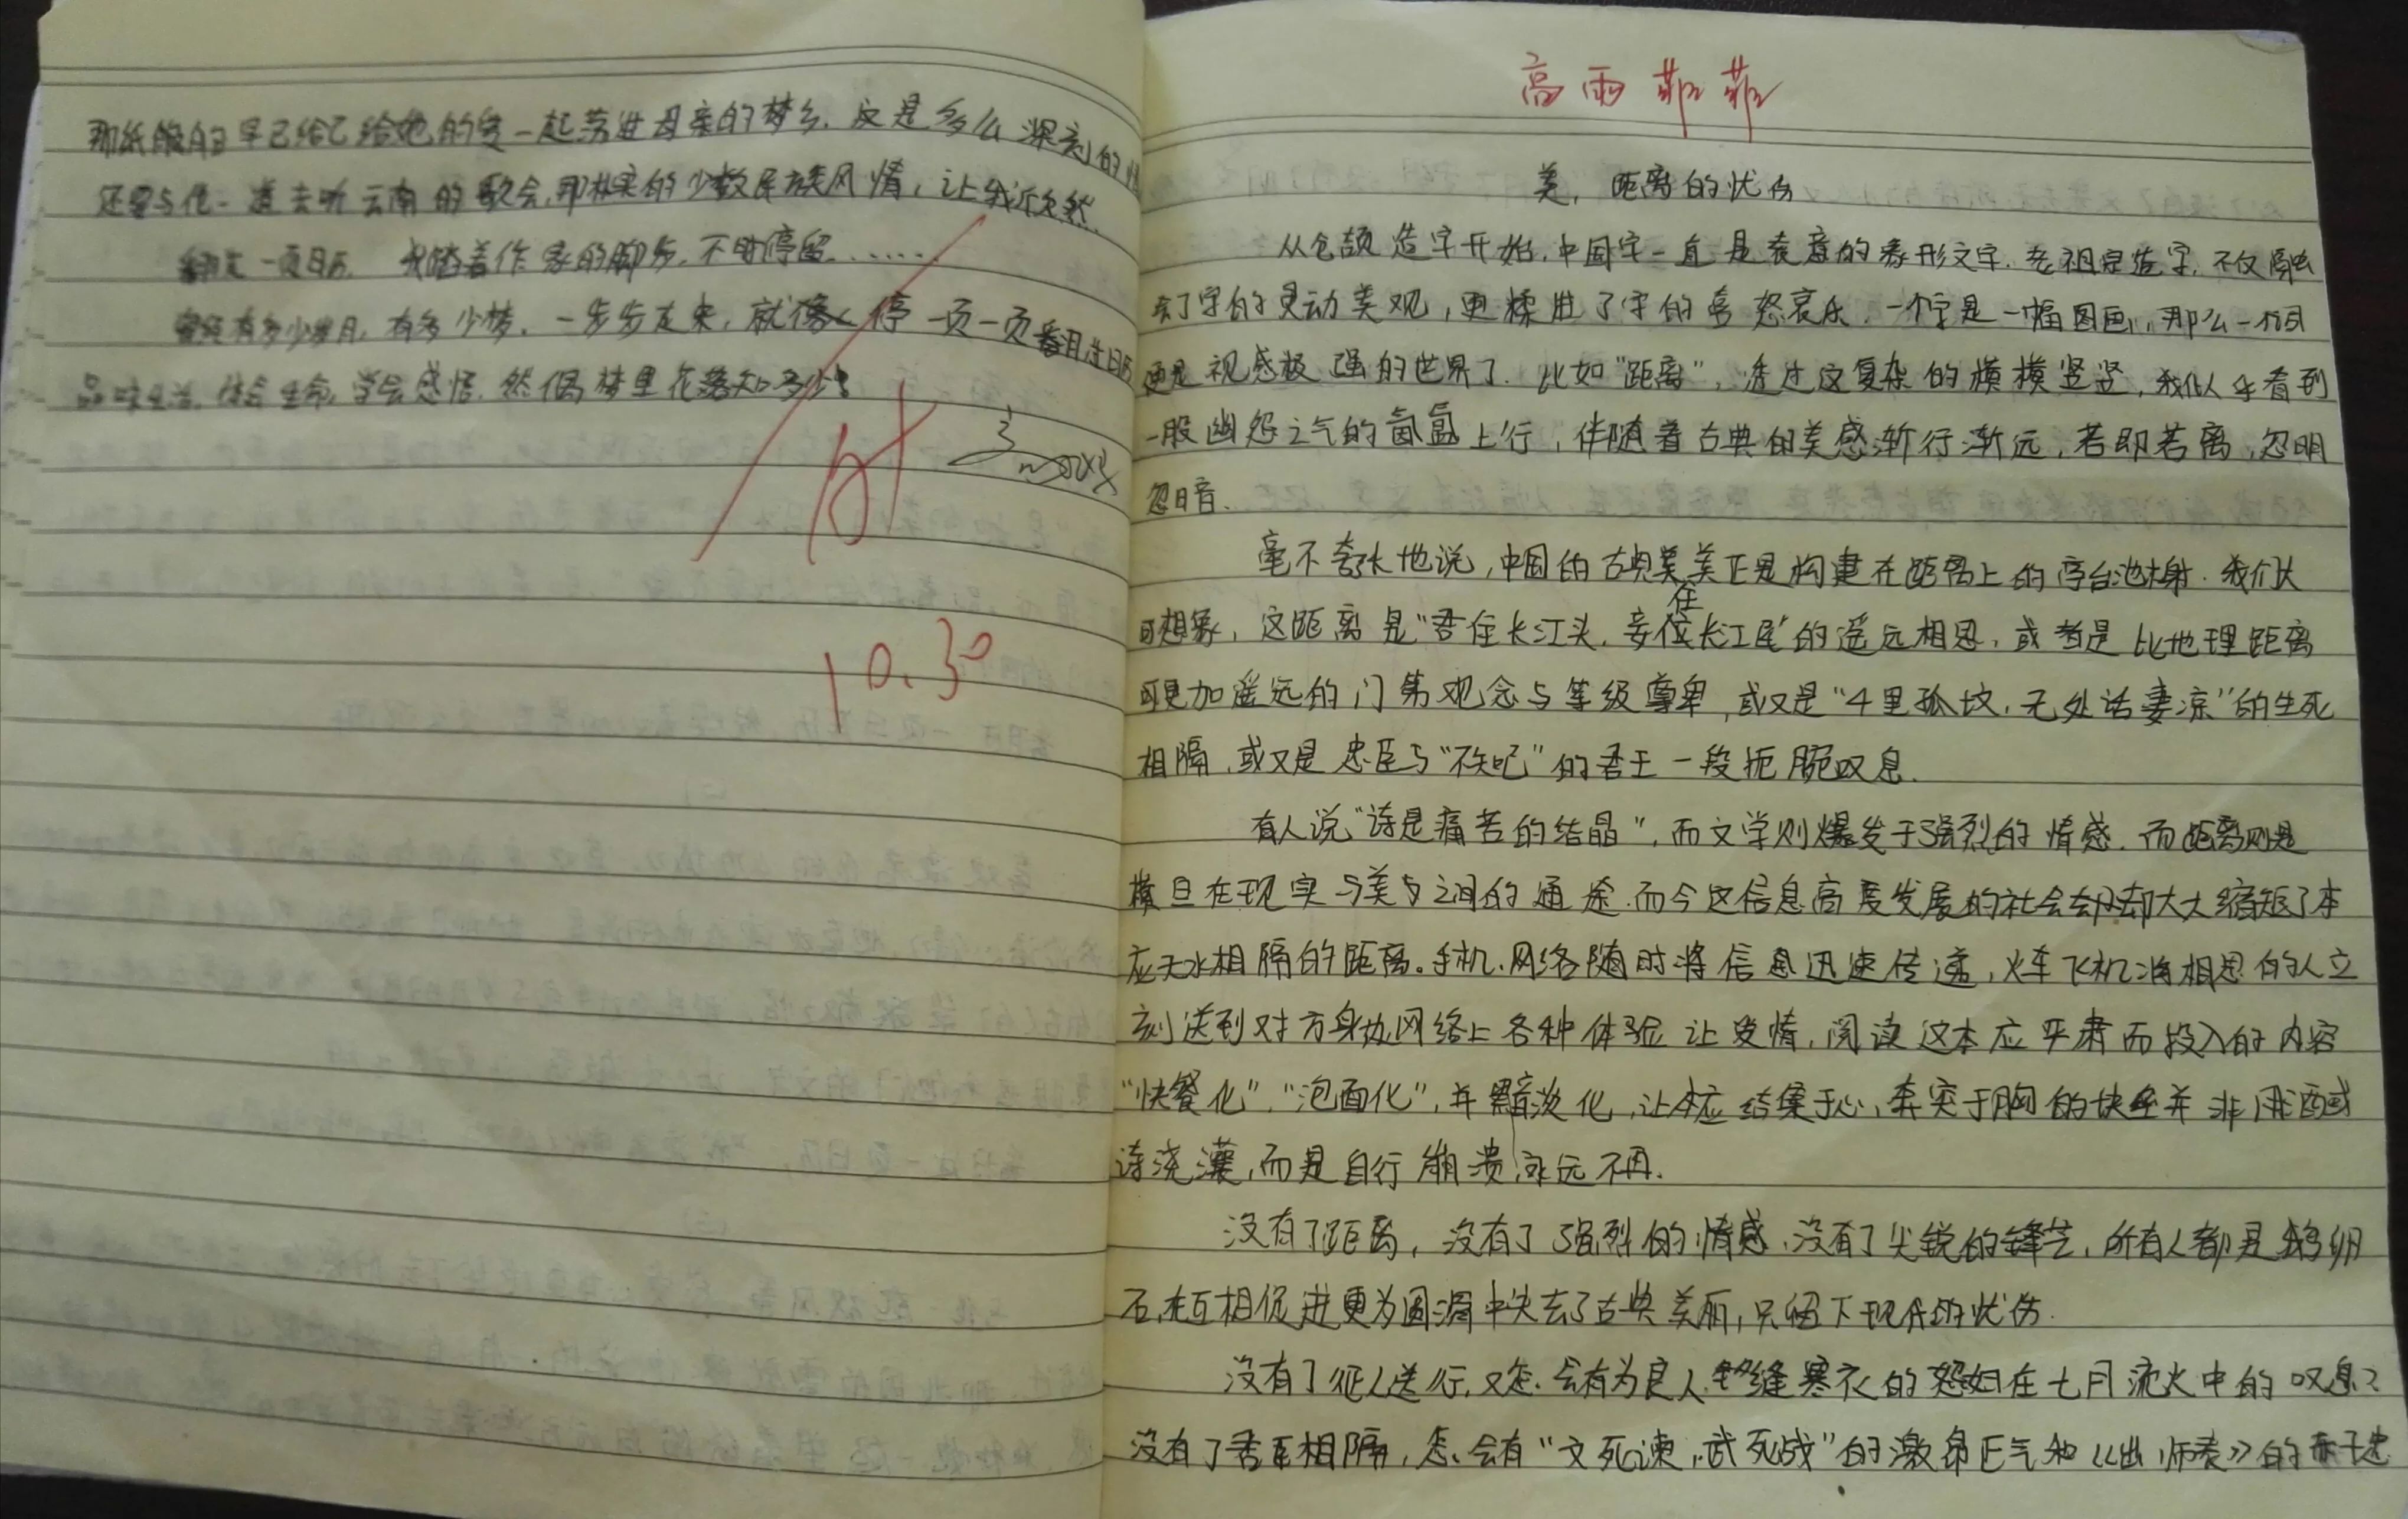 那纸船自早已给已给她的爱一起荡进母亲的梦乡.这是多么深刻的情
还要与他一道去听云南的歌会,那朴实的少数民族风情,让我欣然.
翻过一页日历 我踏着作家的脚步,不时停留......
曾经有多少岁月,有多少梦.一步步走来,就像 停一页一页翻过日历
品味生活,体会生命,学会感悟.然偶梦里花落知多少
10.30
高雨菲菲
美,距离的忧伤
从仓颉造字开始,中国字一直是表意的象形文字.老祖宗造字,不仅融
去了字的灵动美观,更糅进了字的喜怒哀乐.一个字是一幅图画,那么一个词
便是视感极强的世界了.比如"距离",透过这复杂的横横竖竖,我似乎看到
一股幽怨之气的氤氲上行,伴随着古典的美感渐行渐远,若即若离,忽明
忽暗.
毫不夸张地说,中国的古典美正是构建在距离上的亭台池榭.我们大
可想象,这距离是"君住长江头,妾住长江尾"的遥远相思,或者是比地理距离
更加遥远的门第观念与等级尊卑,或又是"千里孤坟,无处话凄凉"的生死
相隔,或又是忠臣与"不知己"的君王一段扼腕叹息.
有人说"诗是痛苦的结晶",而文学则爆发于强烈的情感.而距离则是
横亘在现实与美与之间的通途.而今这信息高度发展的社会却却大大缩短了本
应天水相隔的距离。手机、网络随时将信息迅速传递,火车飞机将相思的人立
刻送到对方身边网络上各种体验让爱情,阅读这本应严肃而投入的内容
"快餐化"."泡面化",并黯淡化,让本应结集于心,奔突于胸的块垒并非用酒或
诗浇灌,而是自行崩溃永远不再.
没有了距离,没有了强烈的情感,没有了尖锐的锋芒,所有人都是鹅卵
石,在互相促进更为圆滑中失去了古典美丽,只留下现代的忧伤.
没有了征人送行,又怎会有为良人缝寒衣的怨妇在七月流火中的叹息?
没有了君臣相隔,怎会有"文死谏,武死战"的激昂正气和《出师表》的赤子忠